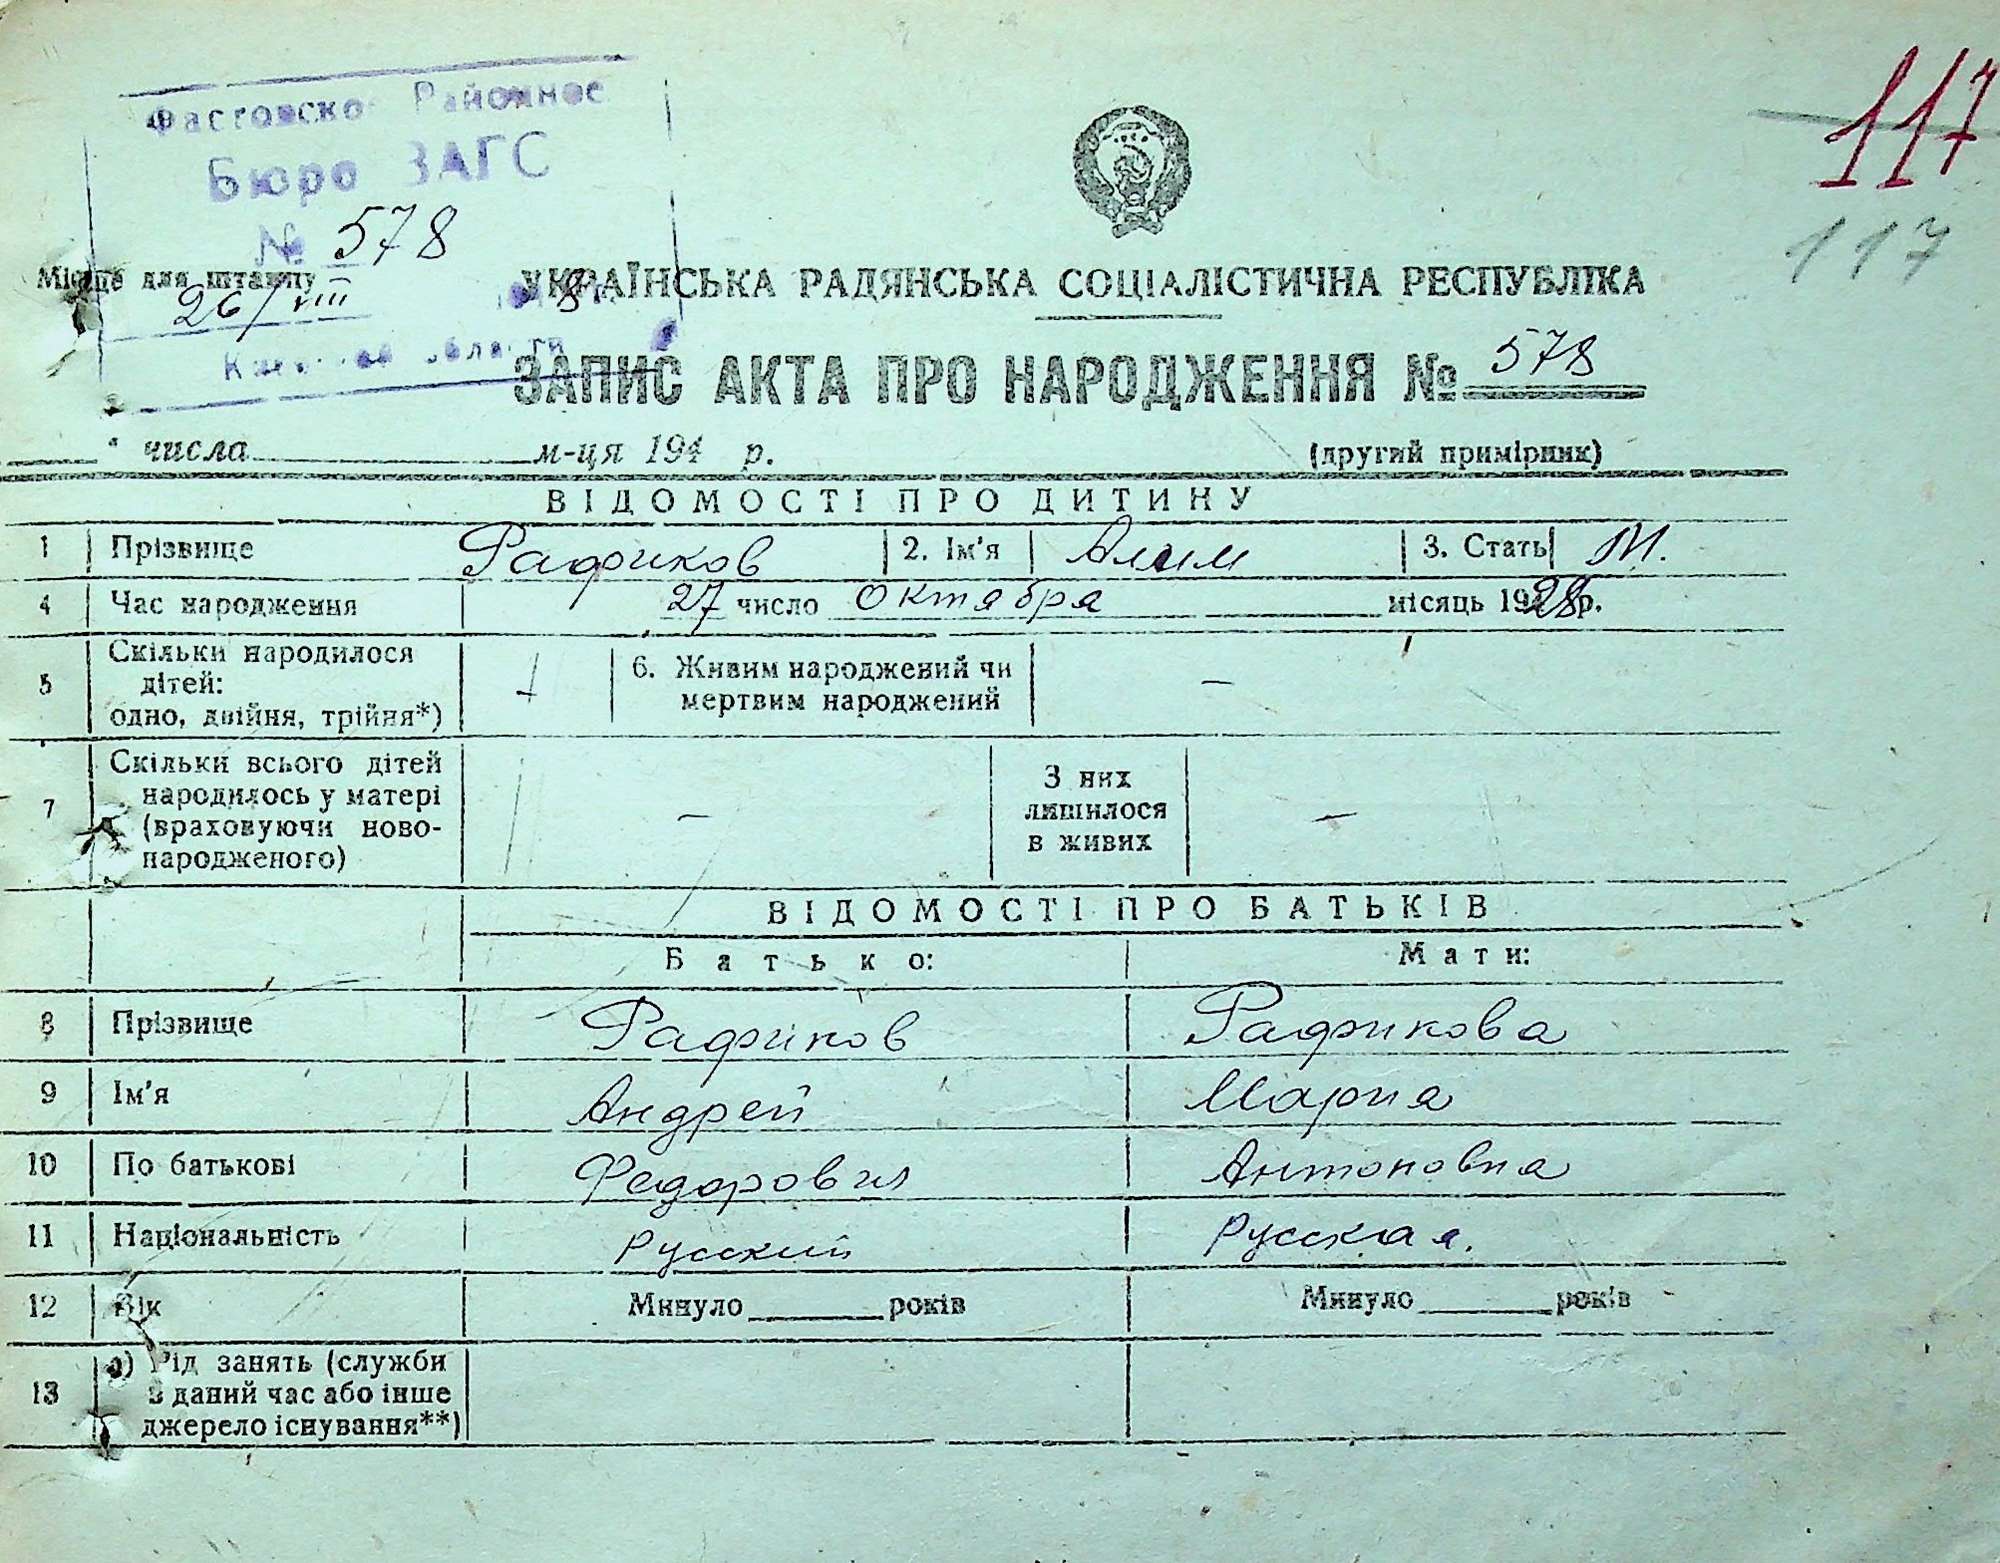 117
117
Фастовское Районное
Бюро ЗАГС
№ 578
Місце для штампу
26/VIII
УКРАЇНСЬКА РАДЯНСЬКА СОЦІАЛІСТИЧНА РЕСПУБЛІКА
области
ЗАПИС АКТА ПРО НАРОДЖЕННЯ № 578
" числа м-ця 194 р.
(другий примірник)
ВІДОМОСТІ ПРО ДИТИНУ
1 Прізвище Рафиков 2. Ім'я Алим 3. Стать М.
4 Час народження 27 число Октября місяць 1928 р.
5 Скільки народилося дітей: одно, двійня, трійня*) 1 6. Живим народжений чи мертвим народжений —
7 Скільки всього дітей народилось у матері (враховуючи новонародженого) — З них лишилося в живих —
ВІДОМОСТІ ПРО БАТЬКІВ
Батько: Мати:
8 Прізвище Рафиков Рафикова
9 Ім'я Андрей Мария
10 По батькові Федорович Антоновна
11 Національність русский русская.
12 Вік Минуло років Минуло років
13 а) Рід занять (служби в даний час або інше джерело існування**)